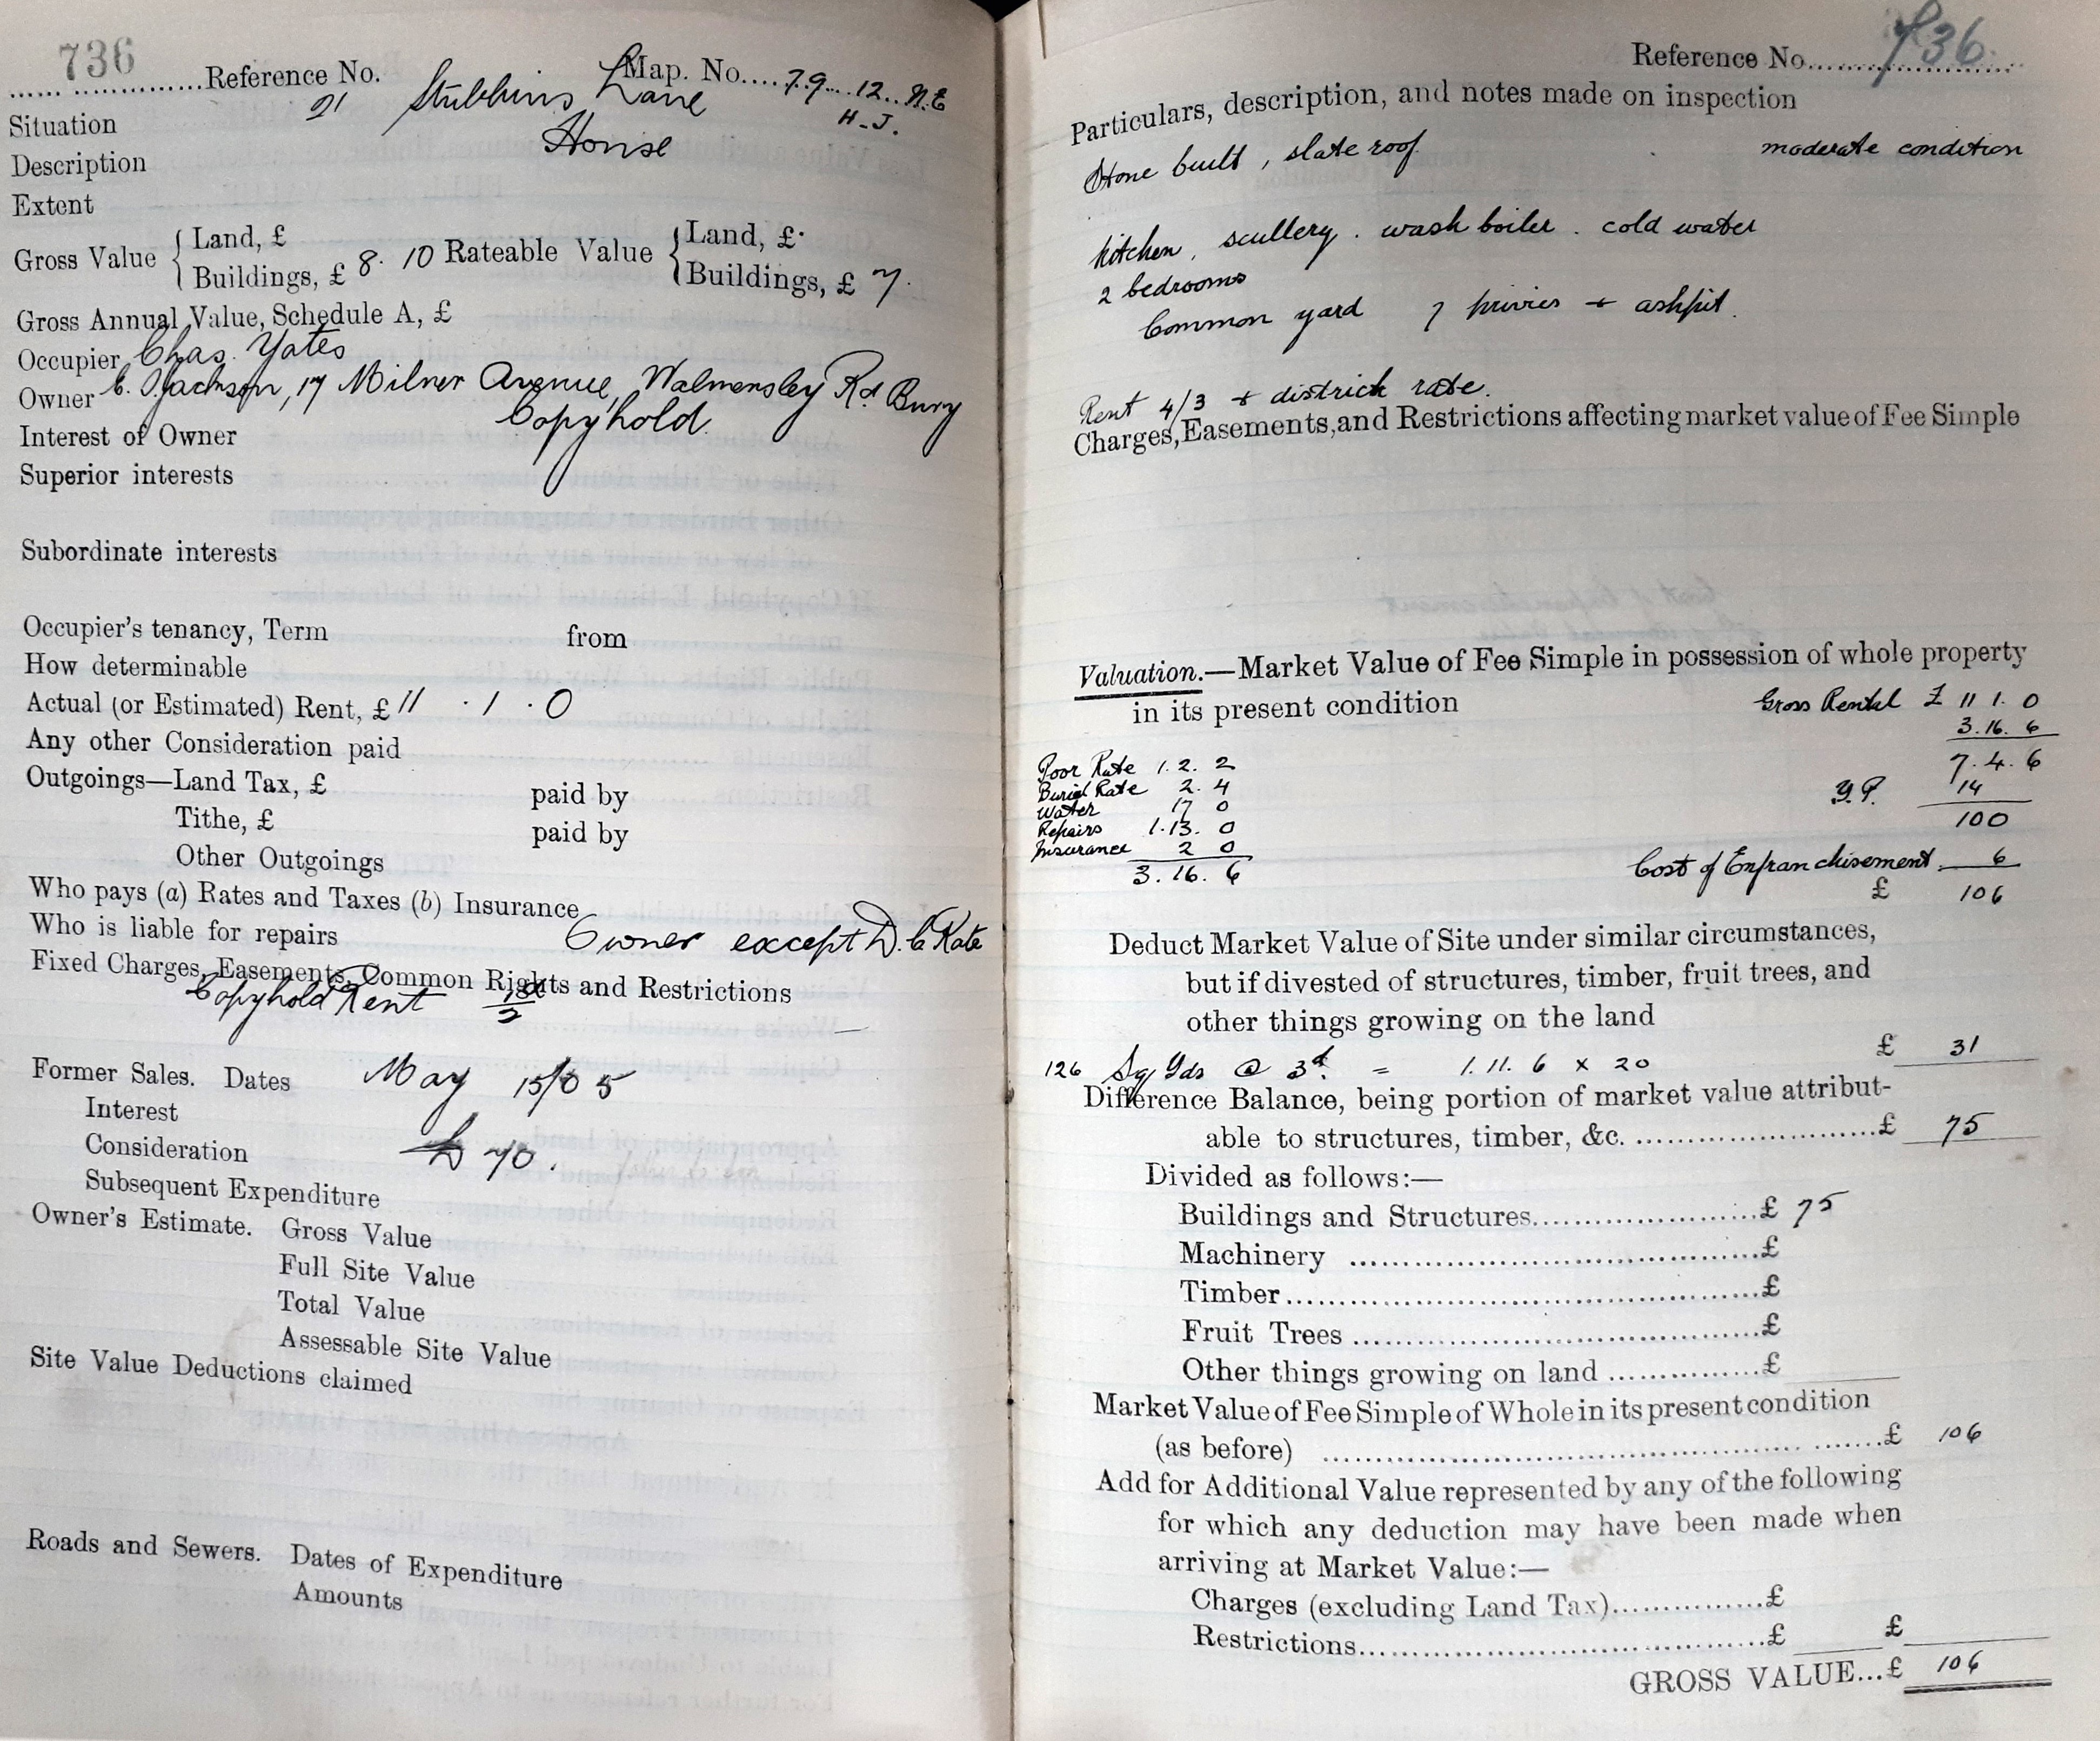 736
Reference No. Map. No. 79 12 N.E
H. J.
Situation 21 Stubbins Lane
Description House
Extent
Gross Value { Land, £ Rateable Value { Land, £
Buildings, £ 8. 10 Buildings, £ 7.
Gross Annual Value, Schedule A, £
Occupier Chas. Yates
Owner Jackson, 17 Milner Avenue, Walmersley Rd Bury
Interest of Owner Copyhold
Superior interests
Subordinate interests
Occupier's tenancy, Term from
How determinable
Actual (or Estimated) Rent, £ 11 . 1 . 0
Any other Consideration paid
Outgoings—Land Tax, £ paid by
Tithe, £ paid by
Other Outgoings
Who pays (a) Rates and Taxes (b) Insurance
Who is liable for repairs Owner except D.C Rate
Fixed Charges, Easements, Common Rights and Restrictions
Copyhold Rent
Former Sales. Dates May 15/05
Interest
Consideration 70.
Subsequent Expenditure
Owner's Estimate. Gross Value
Full Site Value
Total Value
Assessable Site Value
Site Value Deductions claimed
Roads and Sewers. Dates of Expenditure
Amounts
Reference No. 736
Particulars, description, and notes made on inspection
Stone built, slate roof moderate condition
kitchen, scullery. wash boiler. cold water
2 bedrooms
Common yard 7 privies + ashpit.
Rent 4/3 + district rate.
Charges, Easements, and Restrictions affecting market value of Fee Simple
Valuation.—Market Value of Fee Simple in possession of whole property
in its present condition Gross Rental £ 11 1. 0
3. 16. 6
Poor Rate 1. 2. 2 7. 4. 6
Burial Rate 2. 4 Y.P. 14
Water 17 0 100
Repairs 1. 13. 0
Insurance 2 0 Cost of Enfranchisement 6
3. 16. 6 £ 106
Deduct Market Value of Site under similar circumstances,
but if divested of structures, timber, fruit trees, and
other things growing on the land
126 Sq Yds @ 3d. = 1. 11. 6 x 20 £ 31
Difference Balance, being portion of market value attribut-
able to structures, timber, &c. £ 75
Divided as follows:—
Buildings and Structures £ 75
Machinery £
Timber £
Fruit Trees £
Other things growing on land £
Market Value of Fee Simple of Whole in its present condition
(as before) £ 106
Add for Additional Value represented by any of the following
for which any deduction may have been made when
arriving at Market Value:—
Charges (excluding Land Tax) £
Restrictions £ £
GROSS VALUE... £ 106